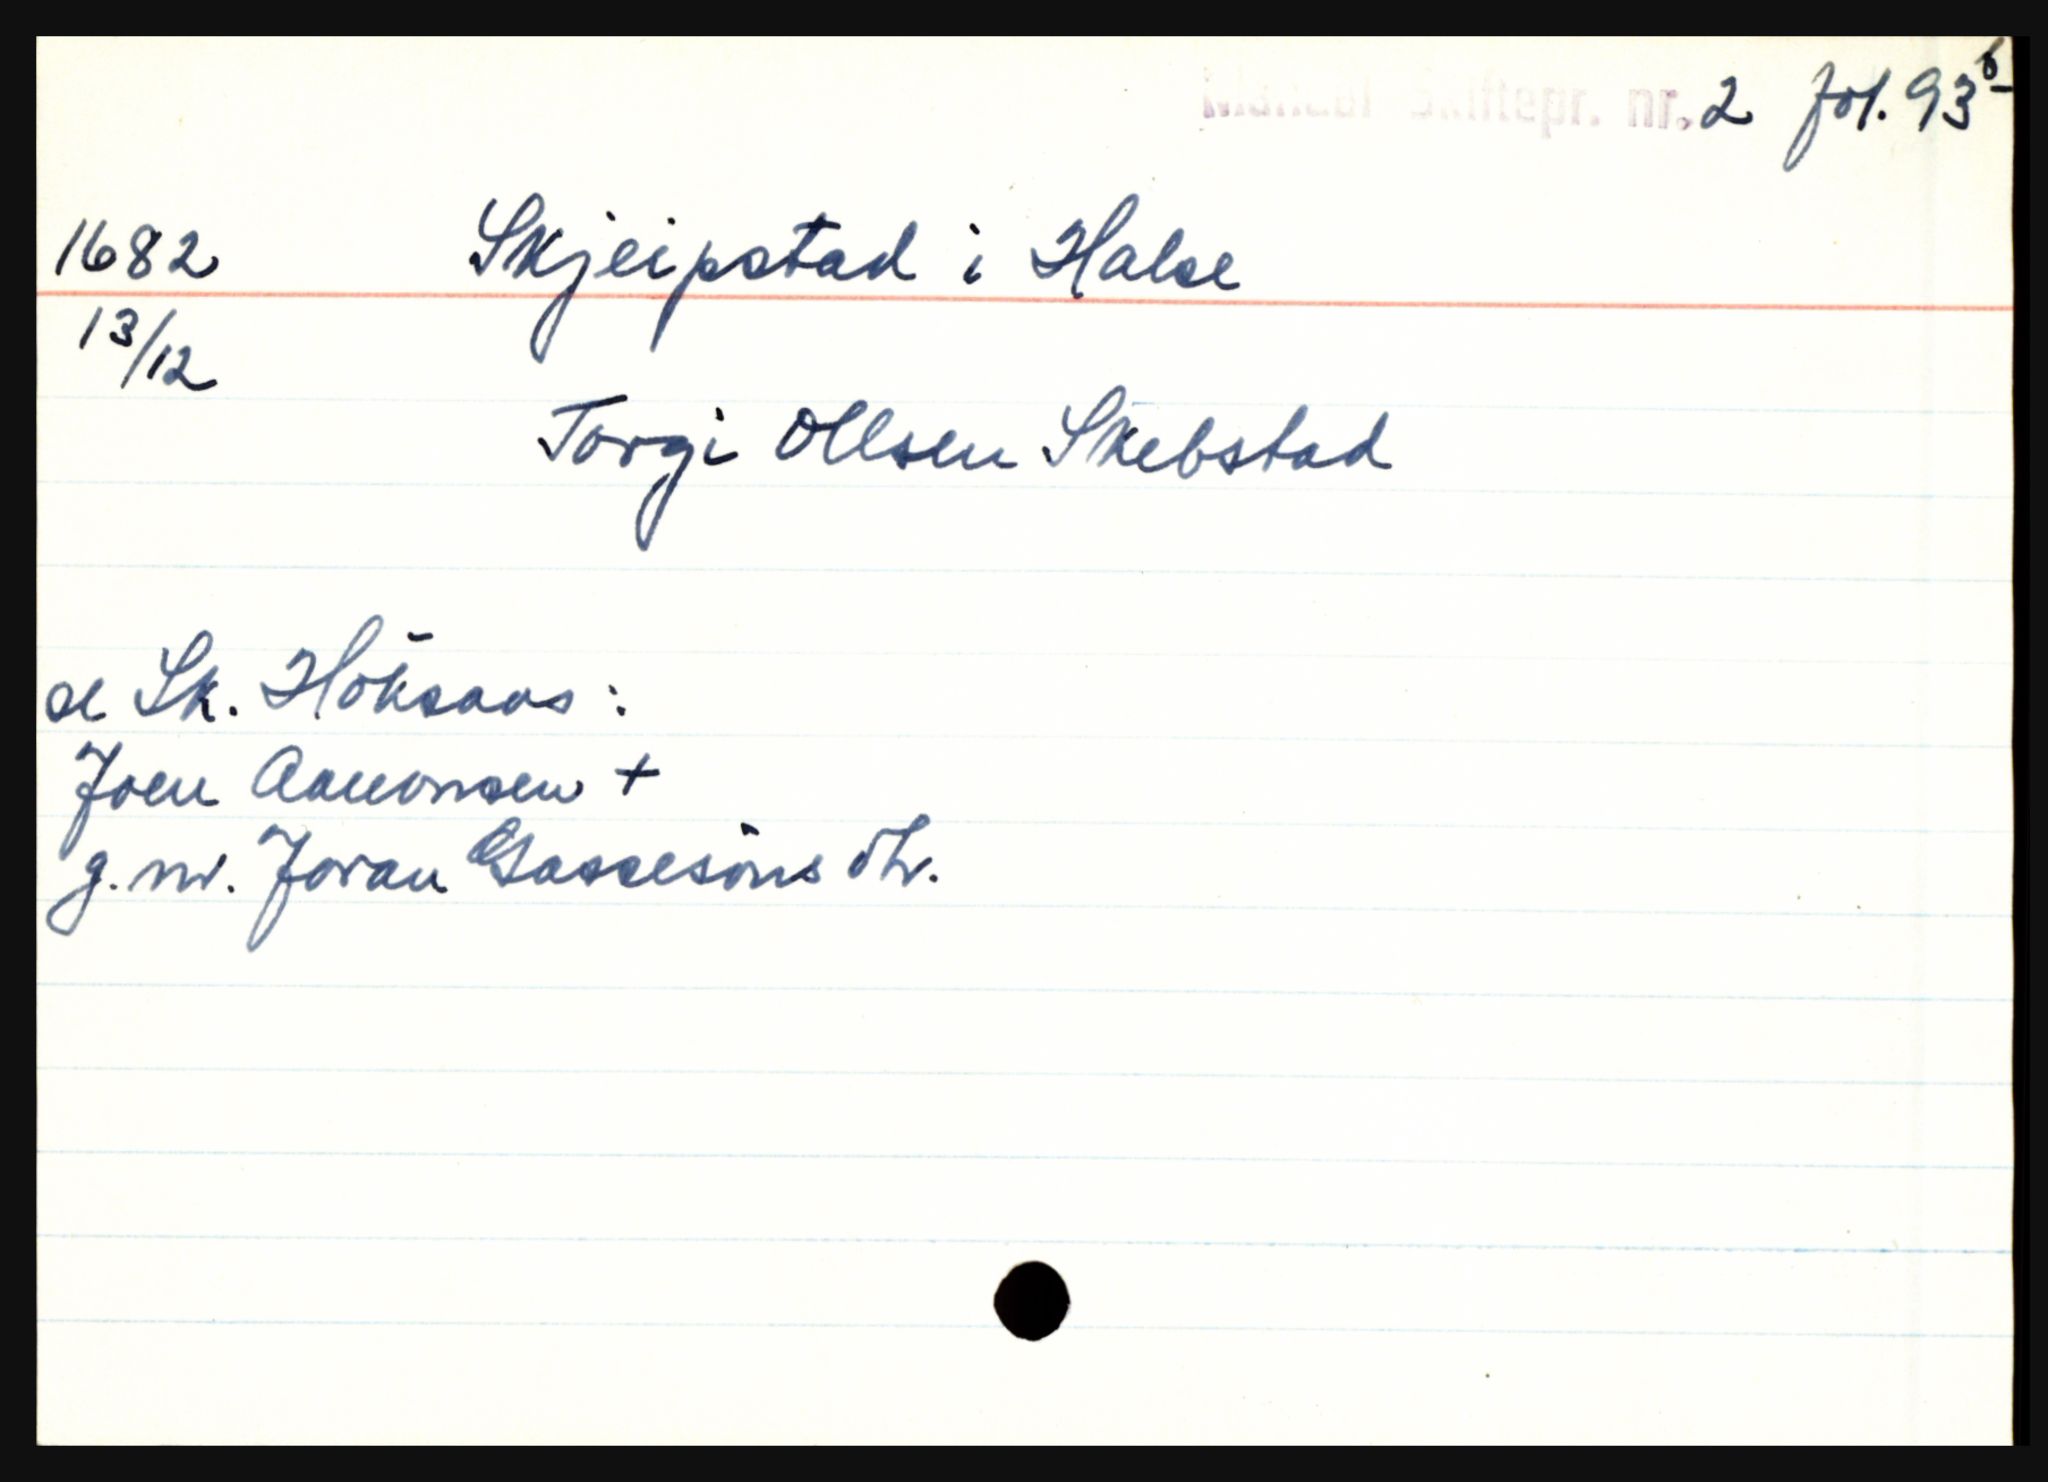 Mandal Skiftepr. nr. 2 fol. 93b
1682 Skjeipstad i Halse
13/12
Torgi Ollsen Skebstad
se Sk. Höksaas:
Joen Aanonsen +
g.m. Joran Gassesöns dtr.